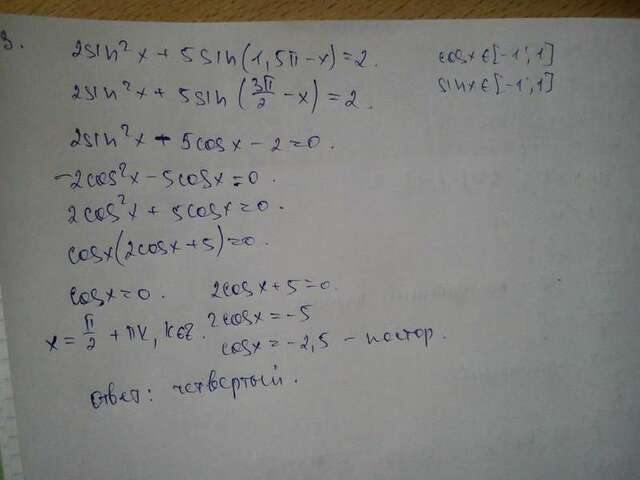 3.
2sin²x + 5sin(1,5π-x)=2. cosx∈[-1;1]
2sin²x + 5sin(3π/2 -x)=2. sinx∈[-1;1]
2sin²x - 5cosx - 2=0.
-2cos²x - 5cosx=0.
2cos²x + 5cosx=0.
cosx(2cosx+5)=0.
cosx=0. 2cosx+5=0
x=π/2 + πk, k∈Z. 2cosx=-5
cosx=-2,5 - посстор.
Ответ: четвертый.